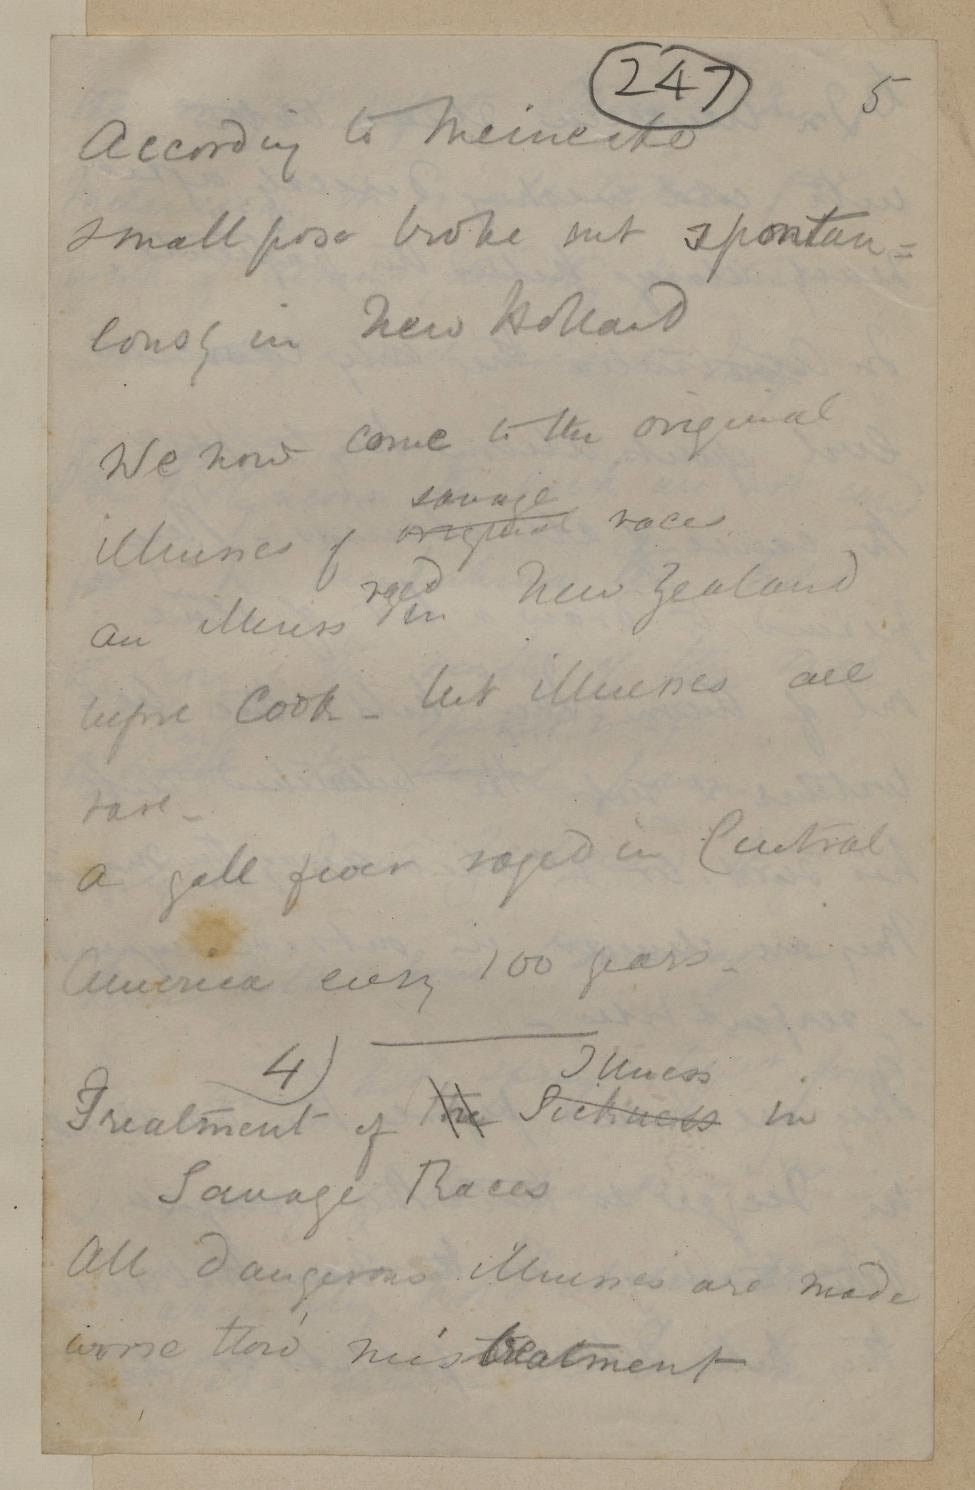 247
5
According to Meinecke
small pox broke out spontan=
eously in New Holland
We now come to the original
savage
illnesses of original races
raged
an illness in New Zealand
before Cook - but illnesses are
rare -
a gall fever raged in Central
America every 100 years -
4)
Illness
Treatment of the Sickness in
Savage Races
All dangerous illnesses are made
worse thro' mistreatment